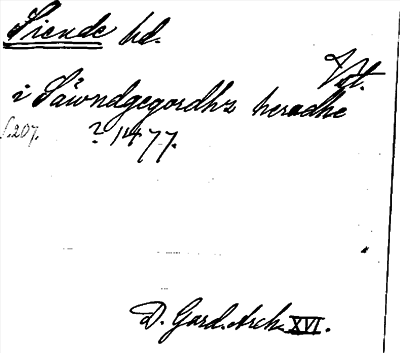 Siende hd.
Vgt.
i Säwndgegordhz heradhe
s. 207. ? 1477.
D. Gard. Ark. XVI.